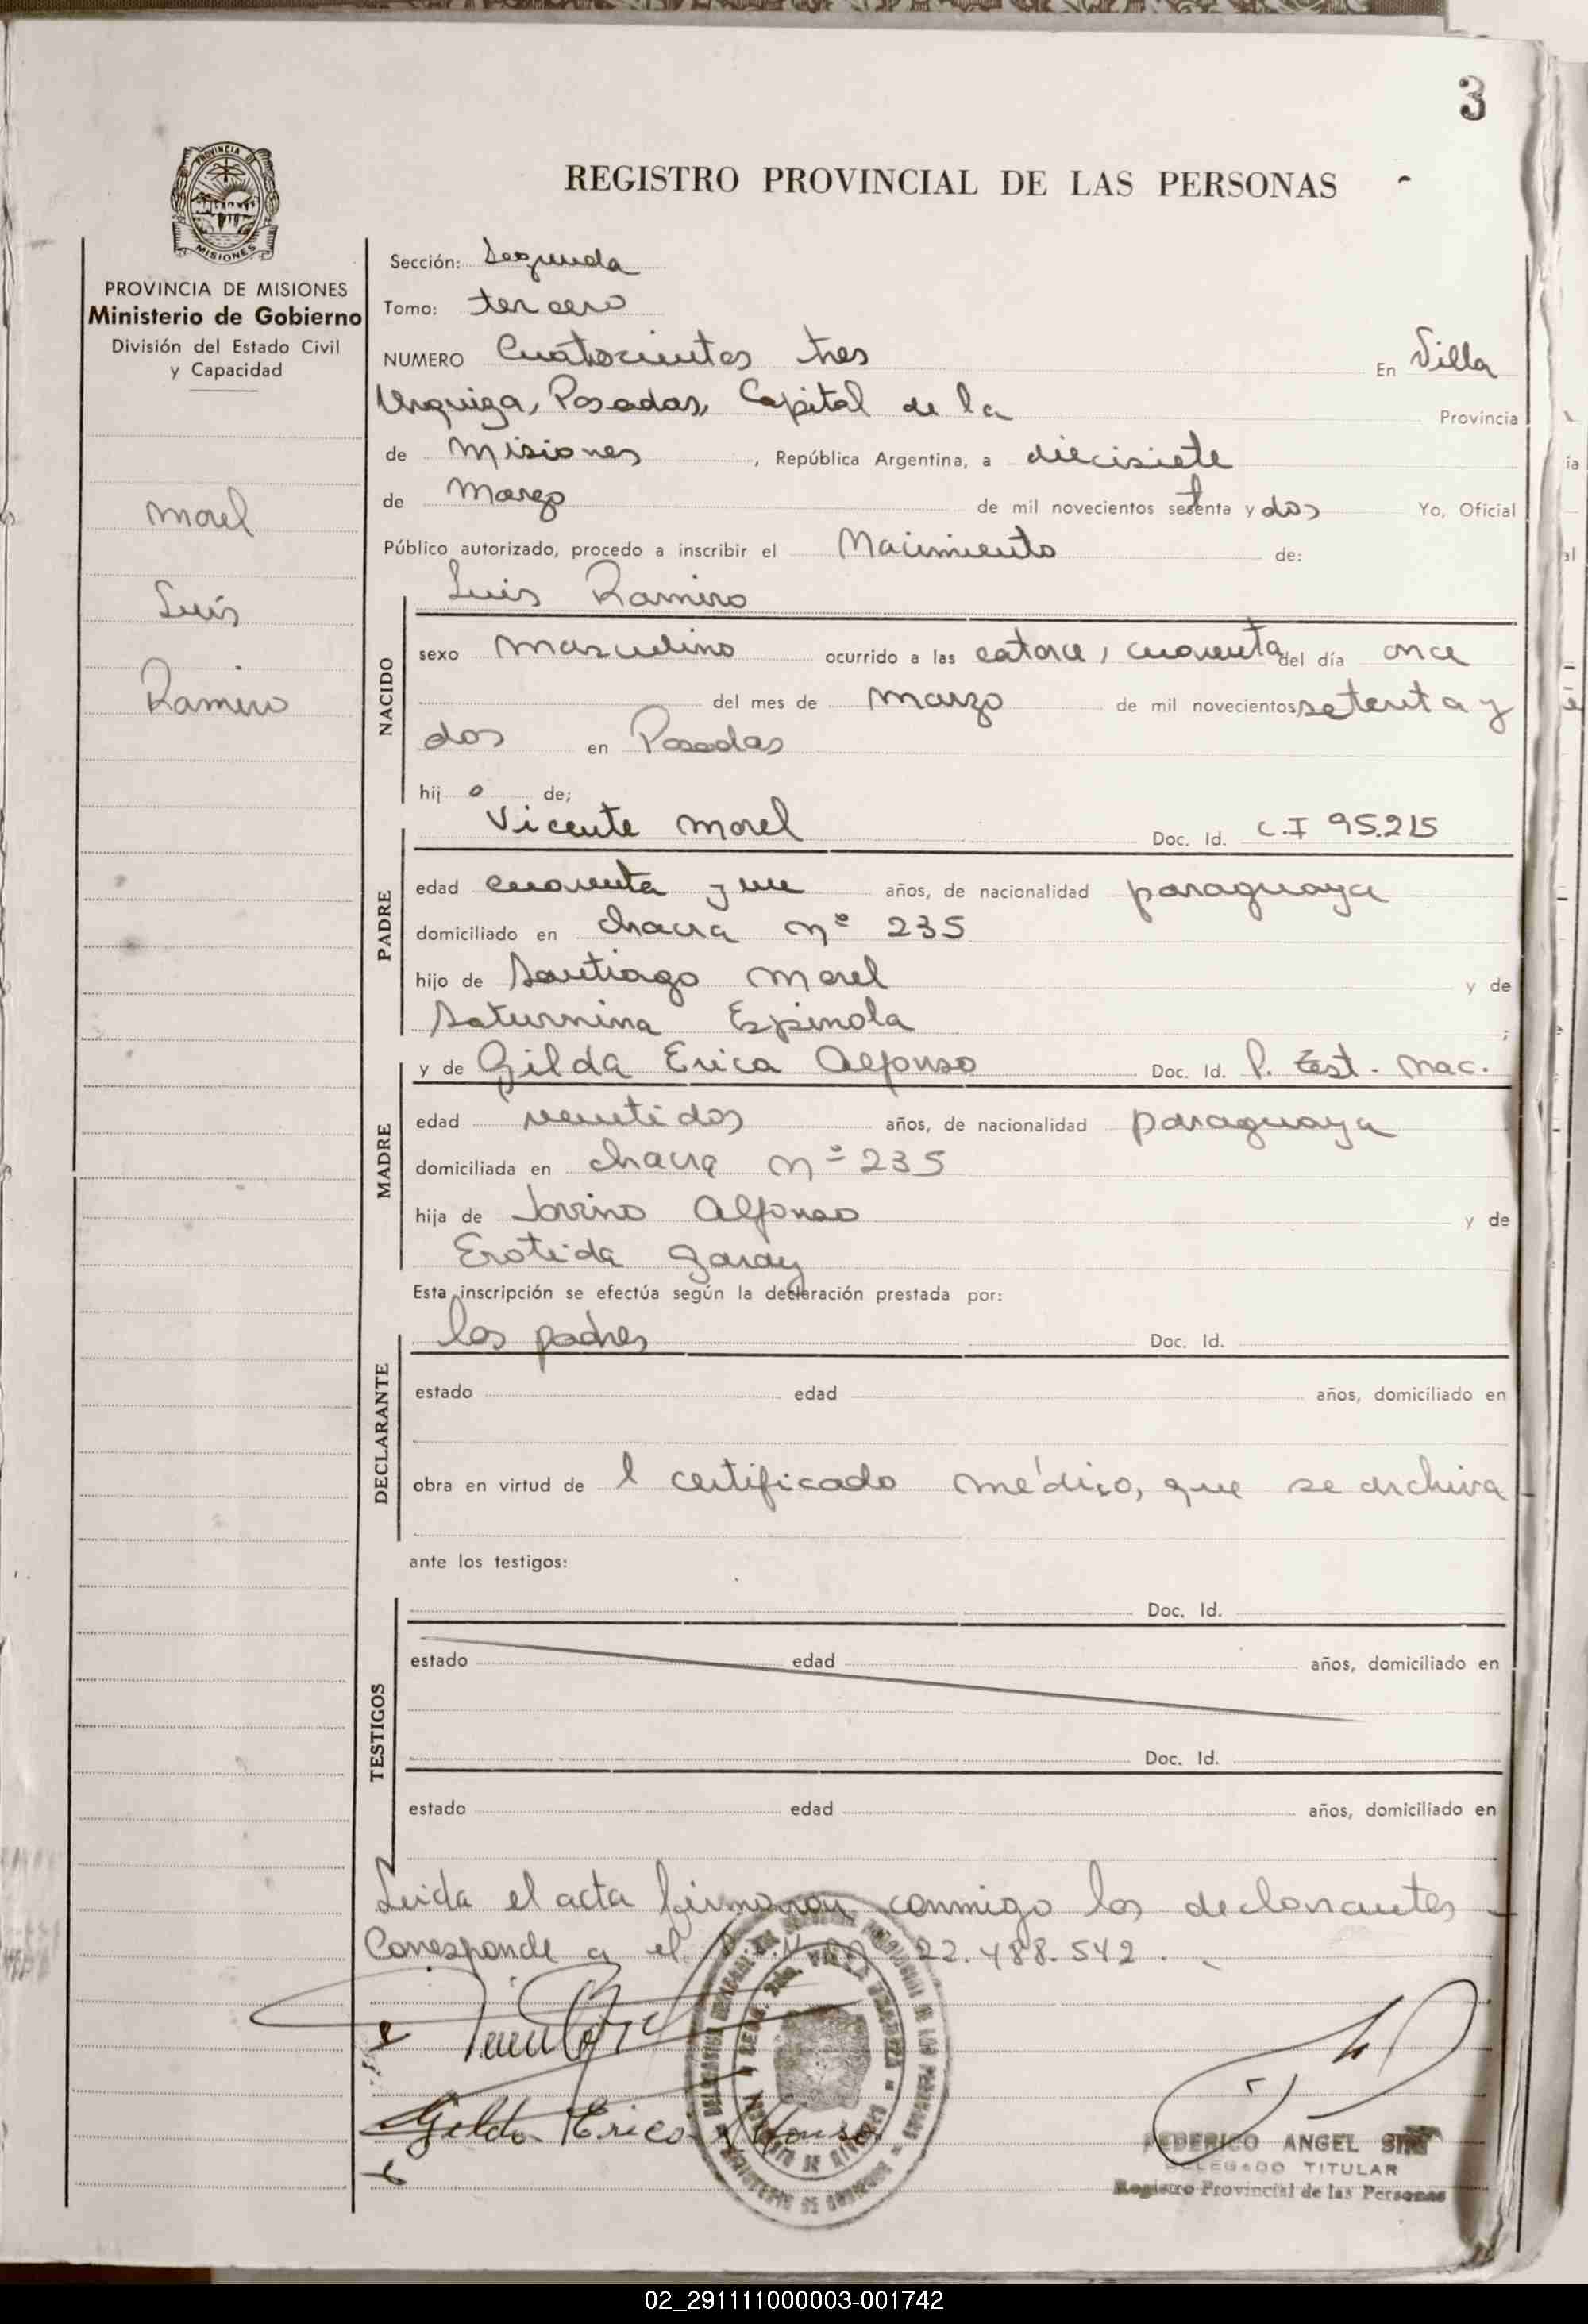 3
REGISTRO PROVINCIAL DE LAS PERSONAS
PROVINCIA DE MISIONES
Ministerio de Gobierno
División del Estado Civil
y Capacidad
Morel
Luis
Ramiro
Sección: Segunda
Tomo: tercero
NUMERO Cuatrocientos tres En Villa
Urquiza, Posadas, Capital de la Provincia
de Misiones, República Argentina, a diecisiete
de Marzo de mil novecientos setenta y dos Yo, Oficial
Público autorizado, procedo a inscribir el Nacimiento de:
Luis Ramiro
NACIDO
sexo masculino ocurrido a las catorce, cuarenta del día once
del mes de marzo de mil novecientos setenta y
dos en Posadas
hijo de;
Vicente Morel Doc. Id. C.I 95.215
PADRE
edad cuarenta y un años, de nacionalidad paraguaya
domiciliado en chacra nº 235
hijo de Santiago Morel y de
Saturnina Espinola ;
y de Gilda Erica Alfonso Doc. Id. P. Test. Nac.
MADRE
edad veintidos años, de nacionalidad paraguaya
domiciliada en chacra nº 235
hija de Alfonso y de
Erotida Garay
Esta inscripción se efectúa según la declaración prestada por:
los padres Doc. Id.
DECLARANTE
estado edad años, domiciliado en
obra en virtud de l certificado médico, que se archiva
ante los testigos:
Doc. Id.
TESTIGOS
estado edad años, domiciliado en
Doc. Id.
estado edad años, domiciliado en
Leida el acta firmaron conmigo los declarantes
Corresponde a el 22.488.542.
Gilda Erica Alfonso
FEDERICO ANGEL
DELEGADO TITULAR
Registro Provincial de las Personas
02_291111000003-001742